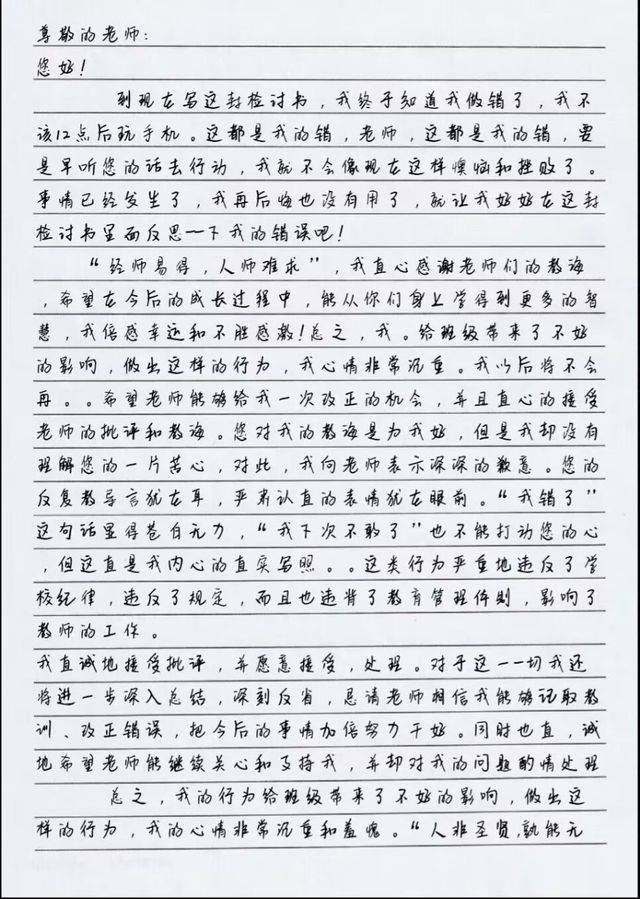 尊敬的老师：
您好！
到现在写这封检讨书，我终于知道我做错了，我不
该12点后玩手机。这都是我的错，老师，这都是我的错，要
是早听您的话去行动，我就不会像现在这样懊恼和挫败了。
事情已经发生了，我再后悔也没有用了，就让我好好在这封
检讨书里面反思一下我的错误吧！
“经师易得，人师难求”，我真心感谢老师们的教诲
，希望在今后的成长过程中，能从你们身上学得到更多的智
慧，我倍感幸运和不胜感激！总之，我。给班级带来了不好
的影响，做出这样的行为，我心情非常沉重。我以后将不会
再。。希望老师能够给我一次改正的机会，并且真心的接受
老师的批评和教诲。您对我的教诲是为我好，但是我却没有
理解您的一片苦心，对此，我向老师表示深深的歉意。您的
反复教导言犹在耳，严肃认真的表情犹在眼前。“我错了”
这句话显得苍白无力，“我下次不敢了”也不能打动您的心
，但这真是我内心的真实写照。。这类行为严重地违反了学
校纪律，违反了规定，而且也违背了教育管理件则，影响了
教师的工作。
我真诚地接受批评，并愿意接受，处理。对于这一一切我还
将进一步深入总结，深刻反省，恳请老师相信我能够记取教
训、改正错误，把今后的事情加倍努力干好。同时也真，诚
地希望老师能继续关心和支持我，并却对我的问题酌情处理
总之，我的行为给班级带来了不好的影响，做出这
样的行为，我的心情非常沉重和羞愧。“人非圣贤,孰能无